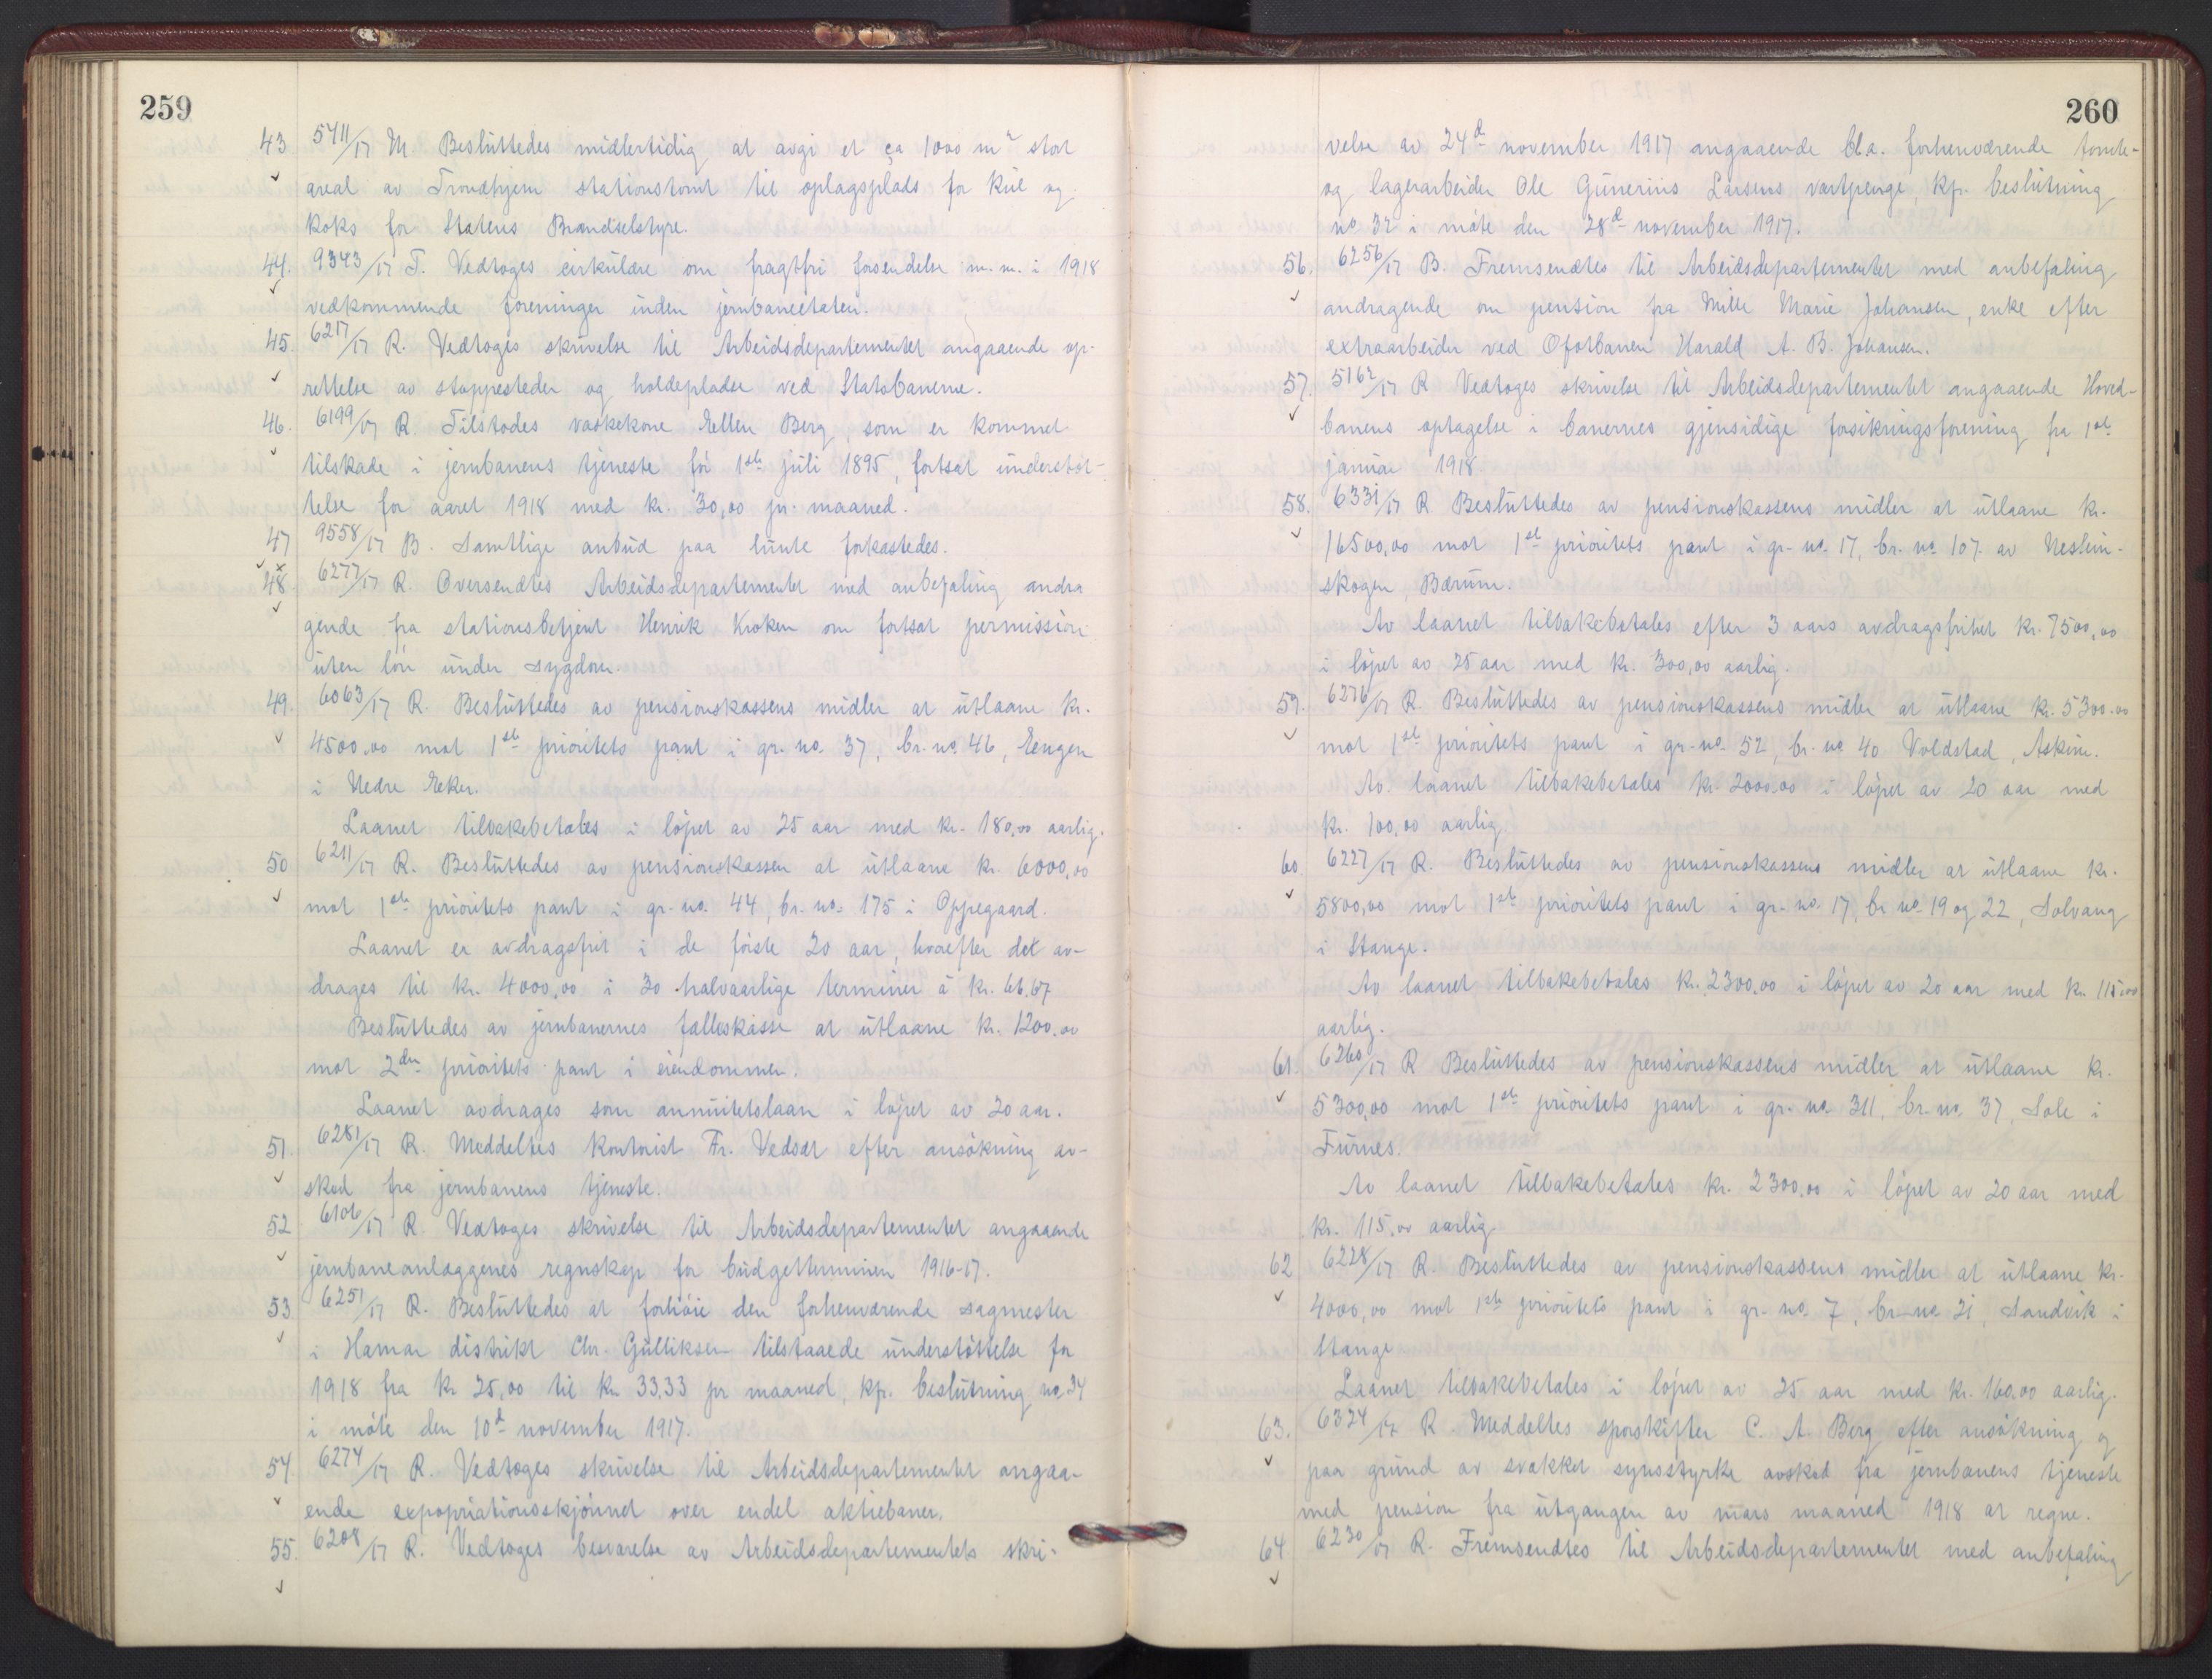 259
43 5411/17 M. Besluttedes midlertidig at avgi et ca 1000 m² stort
areal av Trondhjem stationstomt til oplagsplads for kul og
koks for Statens Brændselstyre.
44. 9343/17 T. Vedtoges cirkulære om fragtfri forsendelse m.m. i 1918
vedkommende foreninger inden jernbaneetaten.
45. 6217/17 R. Vedtoges skrivelse til Arbeidsdepartementet angaaende op-
rettelse av stoppesteder og holdepladse ved Statsbanerne.
46. 6199/17 R. Tilstodes vaskekone Ellen Berg, som er kommet
tilskade i jernbanens tjeneste før 1ste juli 1895, fortsat understøt-
telse for aaret 1918 med kr. 30,00 pr. maaned.
47 9558/17 B. Samtlige anbud paa lunte forkastedes.
48. 6277/17 R. Oversendtes Arbeidsdepartementet med anbefaling andra
gende fra stationsbetjent Henrik Kroken om fortsat permission
uten løn under sygdom.
49. 6063/17 R. Besluttedes av pensionskassens midler at utlaane kr.
4500,00 mot 1ste prioritets pant i gr. no. 37, br. no. 46, Eengen
i Nedre Eker.
Laanet tilbakebetales i løpet av 25 aar med kr. 180,00 aarlig.
50 6211/17 R. Besluttedes av pensionskassen at utlaane kr. 6000,00
mot 1ste prioritets pant i gr. no. 44, br. no. 175 i Oppegaard.
Laanet er avdragsfrit i de første 20 aar, hvorefter det av-
drages til kr. 4000,00 i 30 halvaarlige terminer à kr. 66,67
Besluttedes av jernbanernes fælleskasse at utlaane kr. 1200.00
mot 2den prioritets pant i eiendommen.
Laanet avdrages som annuitetslaan i løpet av 20 aar.
51. 6281/17 R. Meddeltes kontorist Fr. Vedsat efter ansøkning av-
sked fra jernbanens tjeneste.
52 6106/17 R. Vedtoges skrivelse til Arbeidsdepartementet angaaende
jernbaneanlæggenes regnskap for budgetterminen 1916-17.
53 6251/17 R. Besluttedes at forhøie den forhenværende sagmester
i Hamar distrikt Chr. Gulliksen tilstaaede understøttelse for
1918 fra kr 25,00 til kr. 33,33 pr maaned, kfr. beslutning no. 34
i møte den 10de november 1917.
54 6274/17 R. Vedtoges skrivelse til Arbeidsdepartementet angaa-
ende expopriationsskjønnet over endel aktiebaner.
55. 6208/17 R. Vedtoges besvarelse av Arbeidsdepartementets skri-
260
velse av 24de november 1917 angaaende bl.a. forhenværende tomte-
og lagerarbeider Ole Gunerius Larsens vartpenge, kfr. beslutning
no. 32 i møte den 28de november 1917.
56. 6256/17 B. Fremsendtes til Arbeidsdepartementet med anbefaling
andragende om pension fra Mille Marie Johansen, enke efter
extraarbeider ved Ofotbanen Harald A. B. Johansen.
57. 5162/17 R Vedtoges skrivelse til Arbeidsdepartementet angaaende Hoved-
banens optagelse i banernes gjensidige forsikringsforening fra 1ste
januar 1918.
58. 6331/17 R Besluttedes av pensionskassens midler at utlaane kr.
16500,00 mot 1ste prioritets pant i gr. no. 17, br. no. 107 av Neslein-
skogen, Bærum.
Av laanet tilbakebetales efter 3 aars avdragsfrihet kr. 7500,00
i løpet av 25 aar med kr. 300,00 aarlig.
59. 6276/17 R. Besluttedes av pensionskassens midler at utlaane kr. 5300.00
mot 1ste prioritets pant i gr. no. 52, br. no. 40 Voldstad, Askim.
Av laanet tilbakebetales kr. 2000.00 i løpet av 20 aar med
kr. 100,00 aarlig.
60. 6227/17 R. Besluttedes av pensionskassens midler at utlaane kr.
5800,00 mot 1ste prioritets pant i gr. no. 17, br. no. 19 og 22, Solvang
i Stange.
Av laanet tilbakebetales kr. 2300,00 i løpet av 20 aar med kr. 115,00
aarlig.
61. 6260/17 R Besluttedes av pensionskassens midler at utlaane kr.
5300,00 mot 1ste prioritets pant i gr. no. 311, br. no. 37, Sole i
Furnes.
Av laanet tilbakebetales kr. 2300,00 i løpet av 20 aar med
kr. 115,00 aarlig.
62 6228/17 R. Besluttedes av pensionskassens midler at utlaane kr.
4000,00 mot 1ste prioritets pant i gr. no. 7, br. no 21, Sandvik i
Stange
Laanet tilbakebetales i løpet av 25 aar med kr. 160.00 aarlig.
63. 6324/17 R. Meddeltes sporskifter C. A. Berg efter ansøkning og
paa grund av svækket synsstyrke avsked fra jernbanens tjeneste
med pension fra utgangen av mars maaned 1918 at regne.
64 6230/17 R. Fremsendtes til Arbeidsdepartementet med anbefaling